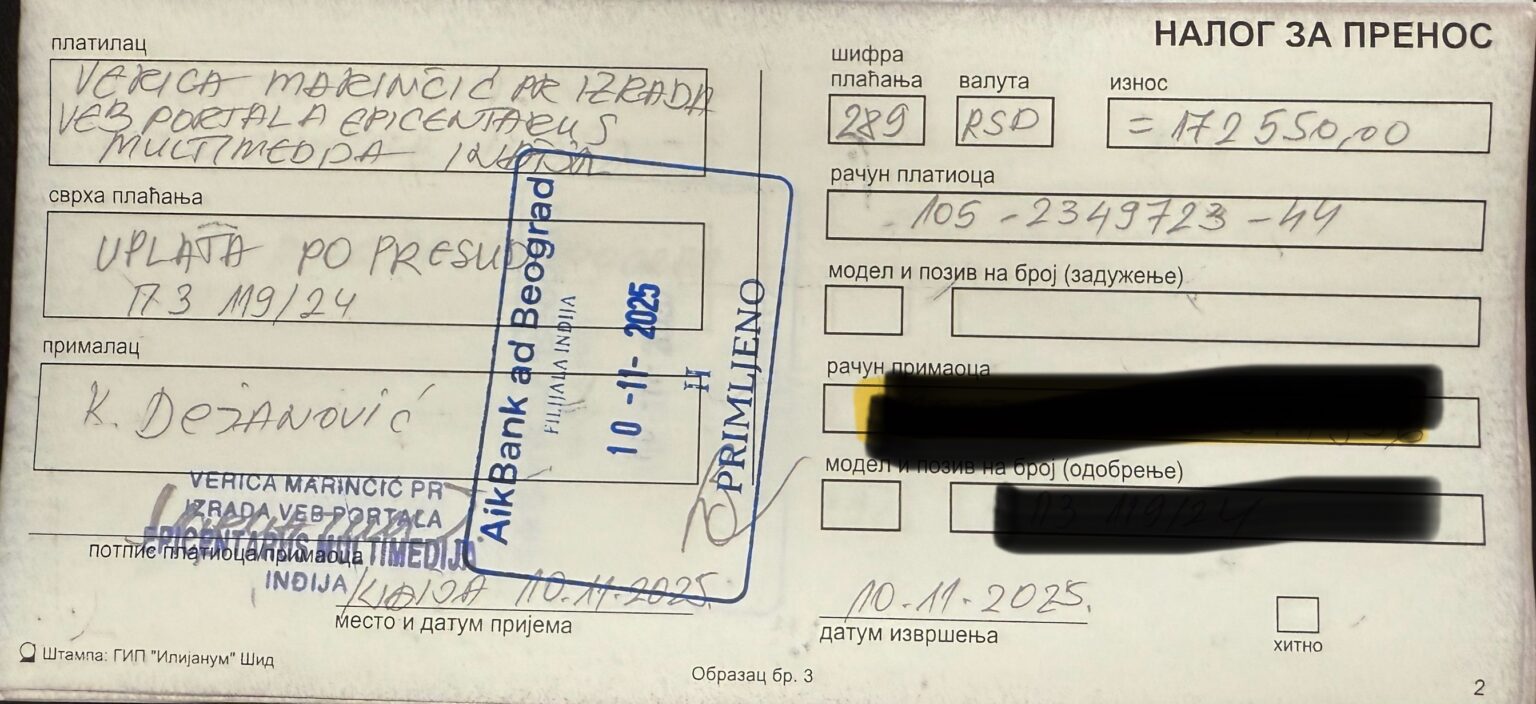 НАЛОГ ЗА ПРЕНОС
платилац
VERICA MARINČIĆ PR IZRADA
VEB PORTALA EPICENTARUS
MULTIMEDIJA INĐIJA
сврха плаћања
UPLATA PO PRESUDI
П3 119/24
прималац
K. DEJANOVIĆ
VERICA MARINČIĆ PR
IZRADA VEB PORTALA
EPICENTARUS MULTIMEDIJA
INĐIJA
потпис платиоца/примаоца
INĐIJA 10.11.2025.
место и датум пријема
AikBank ad Beograd
FILIJALA INĐIJA
10-11-2025
H
PRIMLJENO
шифра
плаћања
289
валута
RSD
износ
= 172 550,00
рачун платиоца
105-2349723-44
модел и позив на број (задужење)
рачун примаоца
модел и позив на број (одобрење)
П3 119/24
10-11-2025.
датум извршења
хитно
Штампа: ГИП "Илијанум" Шид
Образац бр. 3
2